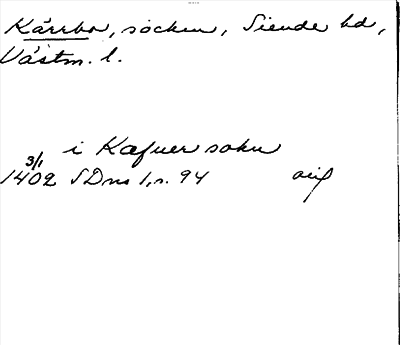 Kärrbo, socken, Siende hd,
Västm. l.
i Kafuer sokn
3/1
1402 SDns 1, s. 94 orig